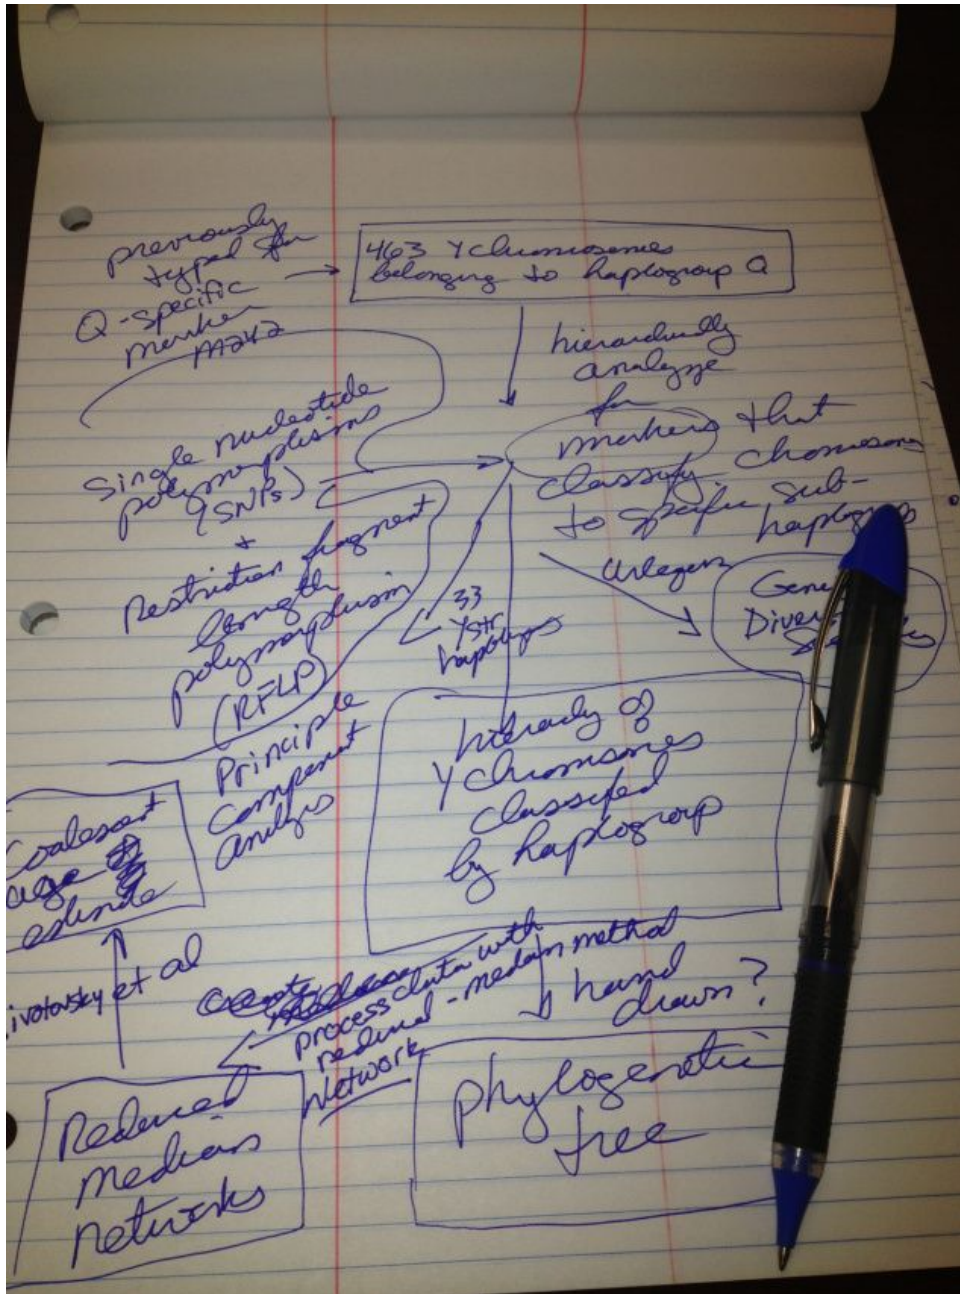 previously
typed for
Q-specific
marker
M242
463 Y chromosomes
belonging to haplogroup Q
hierarchically
analyze
for
markers that
classify chomosoms
to specific sub-
haplogroups
Single nucleotide
polymorphisms
(SNPs)
+
Restriction fragment
length
polymorphism
(RFLP)
33
Y STR
haplotypes
Arlequin
Principle
Component
analysis
hierachy of
Y chromosomes
classified
by haplogroup
Coalescent
age
estimate
ivotovsky et al
process data with
reduced-median method
Network
hand
drawn?
Reduced
median
networks
phylogenetic
tree